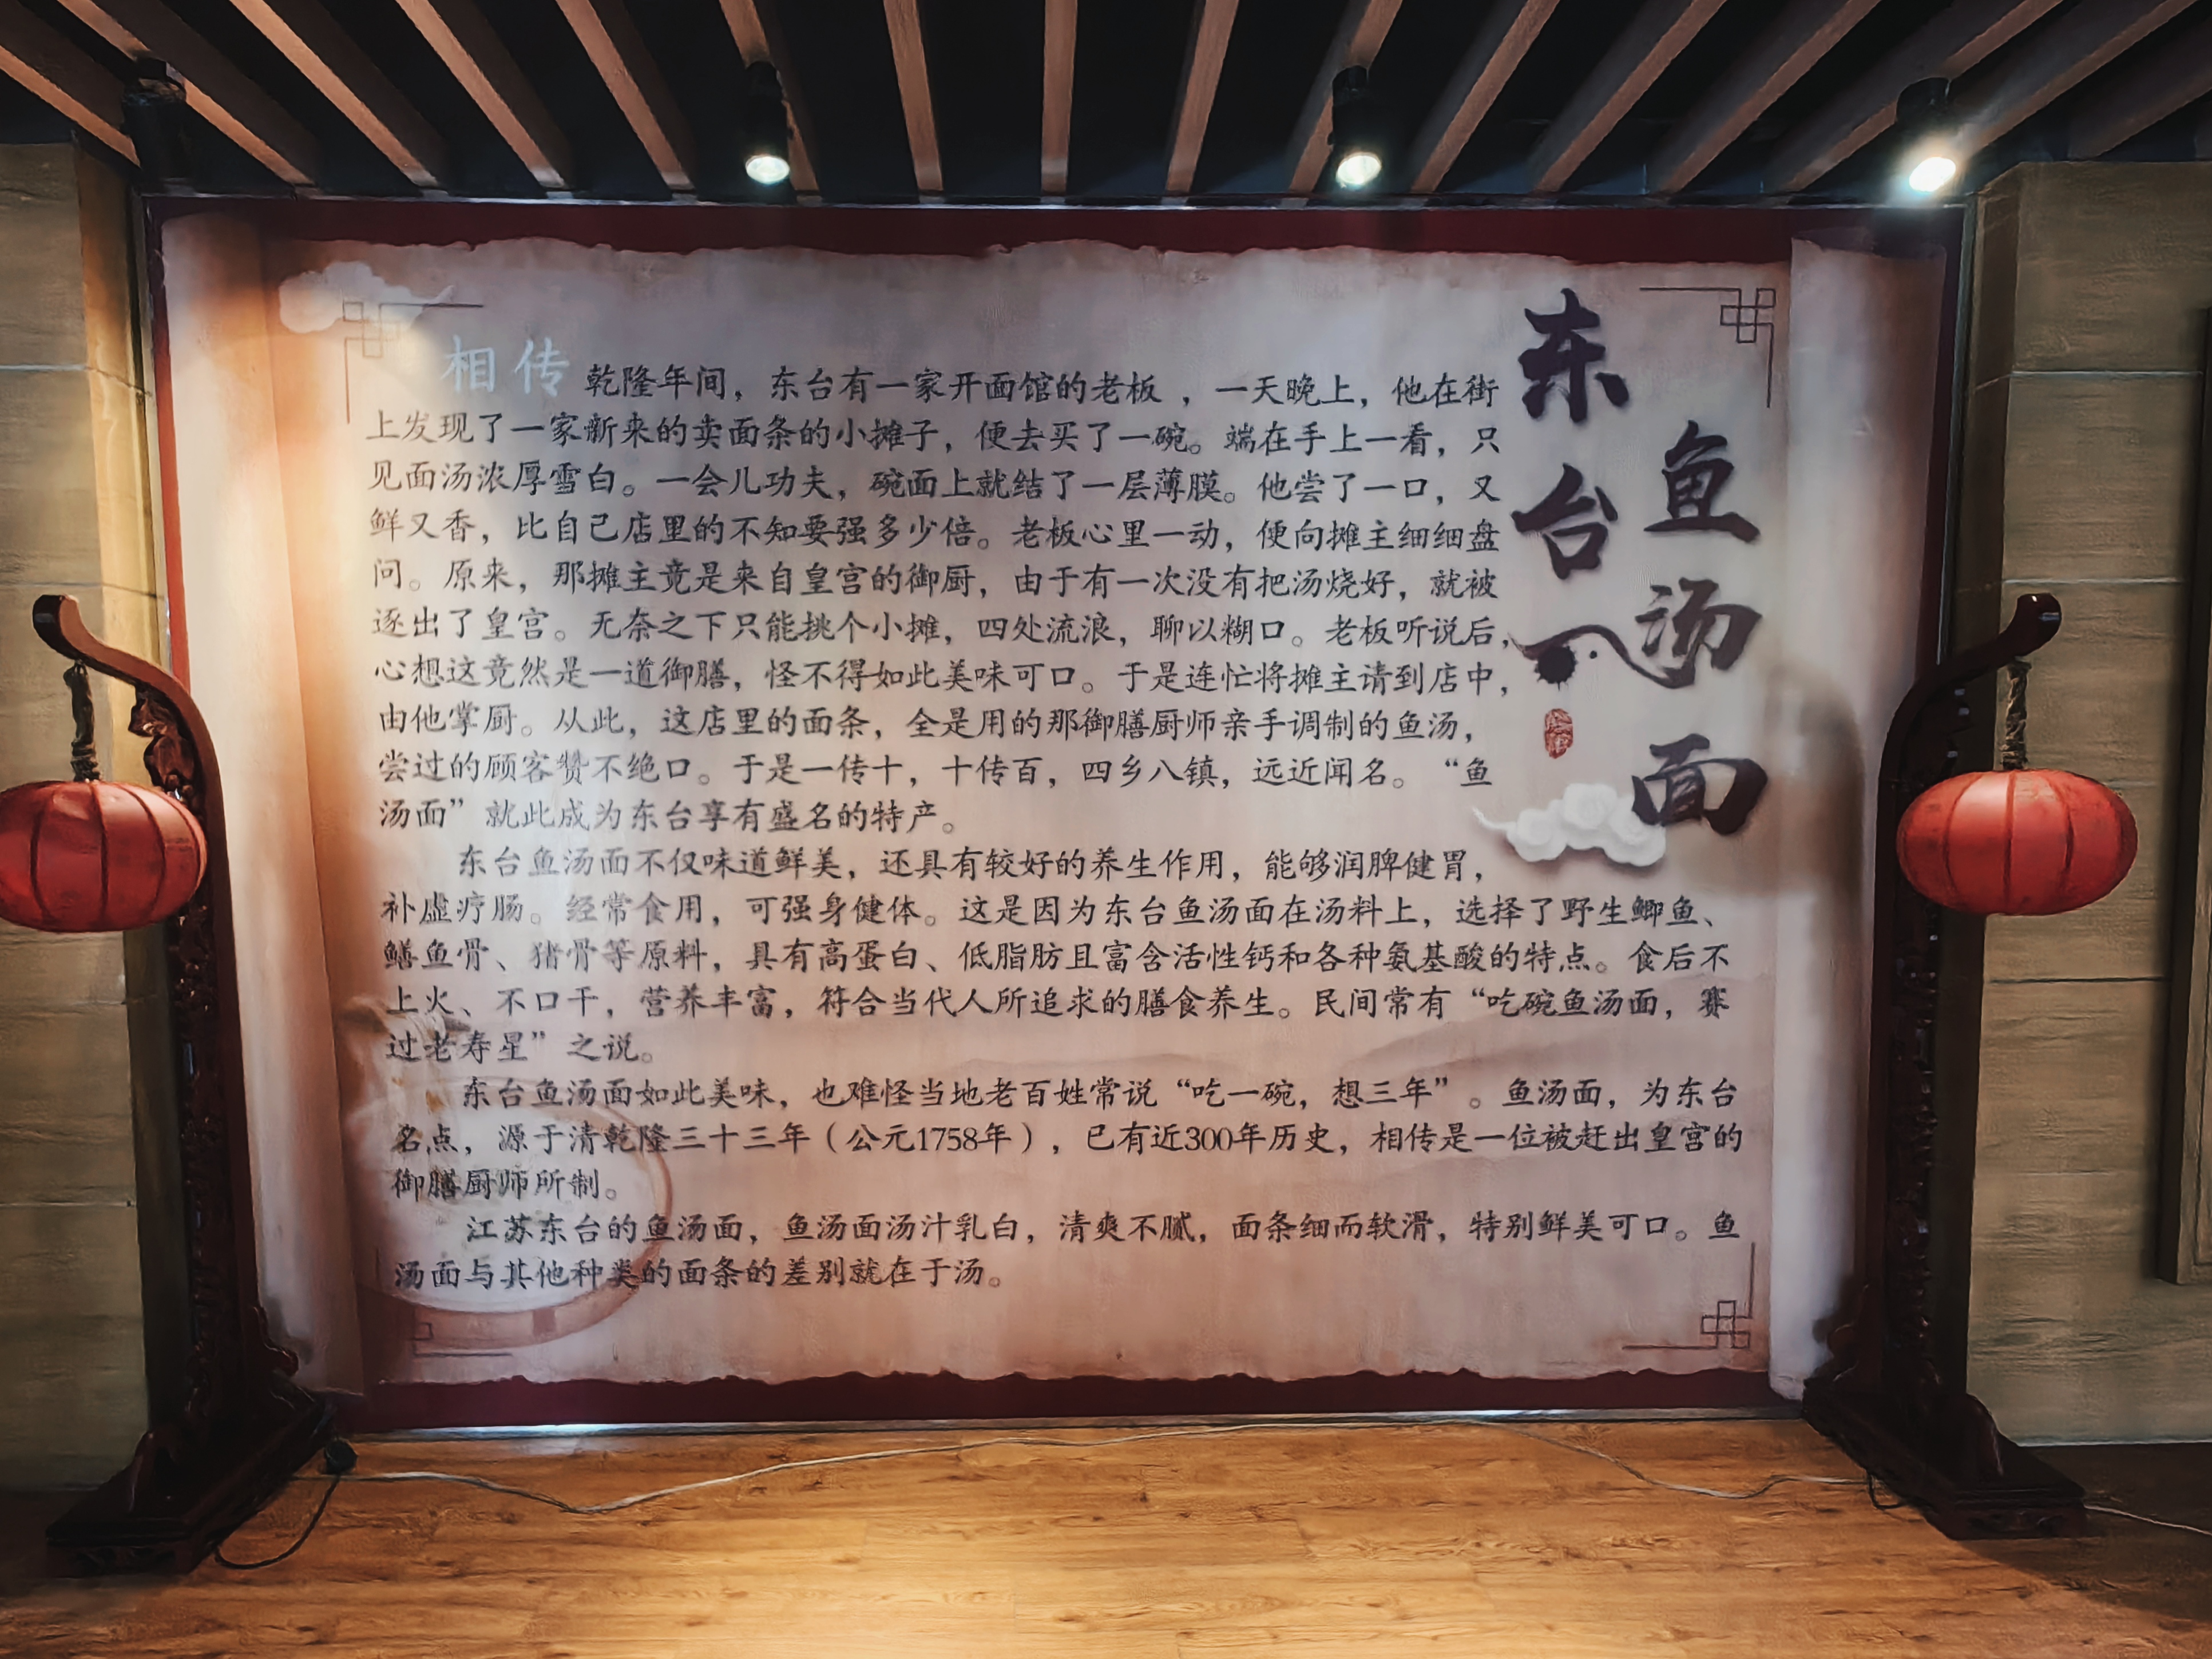 东台
鱼汤面
相传 乾隆年间，东台有一家开面馆的老板，一天晚上，他在街
上发现了一家新来的卖面条的小摊子，便去买了一碗。端在手上一看，只
见面汤浓厚雪白。一会儿功夫，碗面上就结了一层薄膜。他尝了一口，又
鲜又香，比自己店里的不知要强多少倍。老板心里一动，便向摊主细细盘
问。原来，那摊主竟是来自皇宫的御厨，由于有一次没有把汤烧好，就被
逐出了皇宫。无奈之下只能挑个小摊，四处流浪，聊以糊口。老板听说后，
心想这竟然是一道御膳，怪不得如此美味可口。于是连忙将摊主请到店中，
由他掌厨。从此，这店里的面条，全是用的那御膳厨师亲手调制的鱼汤，
尝过的顾客赞不绝口。于是一传十，十传百，四乡八镇，远近闻名。“鱼
汤面”就此成为东台享有盛名的特产。
东台鱼汤面不仅味道鲜美，还具有较好的养生作用，能够润脾健胃，
补虚疗肠。经常食用，可强身健体。这是因为东台鱼汤面在汤料上，选择了野生鲫鱼、
鳝鱼骨、猪骨等原料，具有高蛋白、低脂肪且富含活性钙和各种氨基酸的特点。食后不
上火、不口干，营养丰富，符合当代人所追求的膳食养生。民间常有“吃碗鱼汤面，赛
过老寿星”之说。
东台鱼汤面如此美味，也难怪当地老百姓常说“吃一碗，想三年”。鱼汤面，为东台
名点，源于清乾隆三十三年（公元1758年），已有近300年历史，相传是一位被赶出皇宫的
御膳厨师所制。
江苏东台的鱼汤面，鱼汤面汤汁乳白，清爽不腻，面条细而软滑，特别鲜美可口。鱼
汤面与其他种类的面条的差别就在于汤。